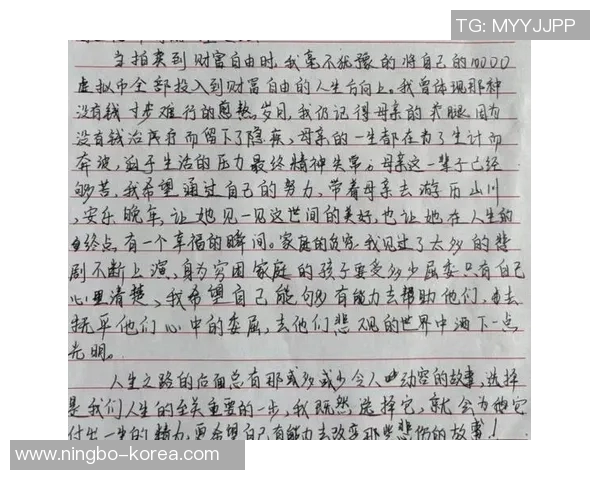 TG: MYYJJPP
当拍卖到财富自由时,我毫不犹豫的将自己的10000
虚拟币全部投入到财富自由的人生方向上。我曾体现那种
没有钱寸步难行的岁月,我仍记得母亲的腿因为
没有钱治疗而留下了隐疾,母亲的一生都在为了生计而
奔波,迫于生活的压力最终精神失常。母亲这一辈子已经
够苦,我希望通过自己的努力,带着母亲去游历山川
,安乐晚年,让她见一见这世间的美好,也让她在人生的
终点有一个幸福的瞬间。家庭的贫穷,我见过了太多的悲
剧不断上演,身为穷困家庭的孩子要受多少屈委只有自己
心里清楚,我希望自己能够有能力去帮助他们,去
抚平他们心中的委屈,去他们悲观的世界中洒下一点
光明。
人生之路的后面总有那或多或少令人动容的故事,选择
是我们人生的至关重要的一步,我既然选择它,就会为他它
付出一生的精力,更希望自己有能力去改变那些悲伤的故事!
www.ningbo-korea.com